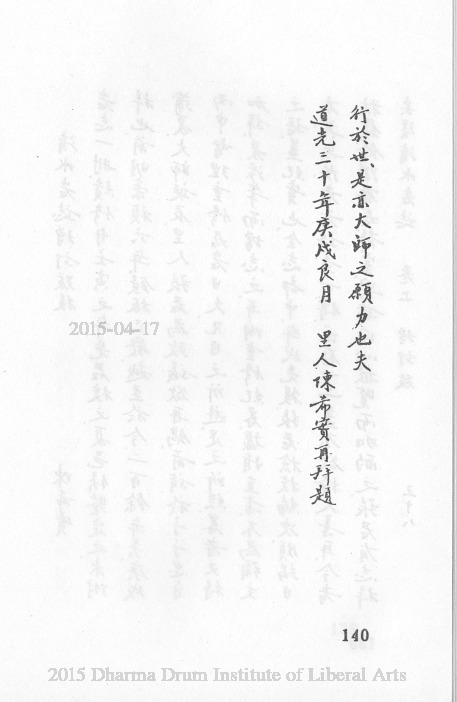 行於世、是亦大師之願力也夫
道光三十年庚戌良月　里人陳希實再拜題
2015-04-17
140
2015 Dharma Drum Institute of Liberal Arts